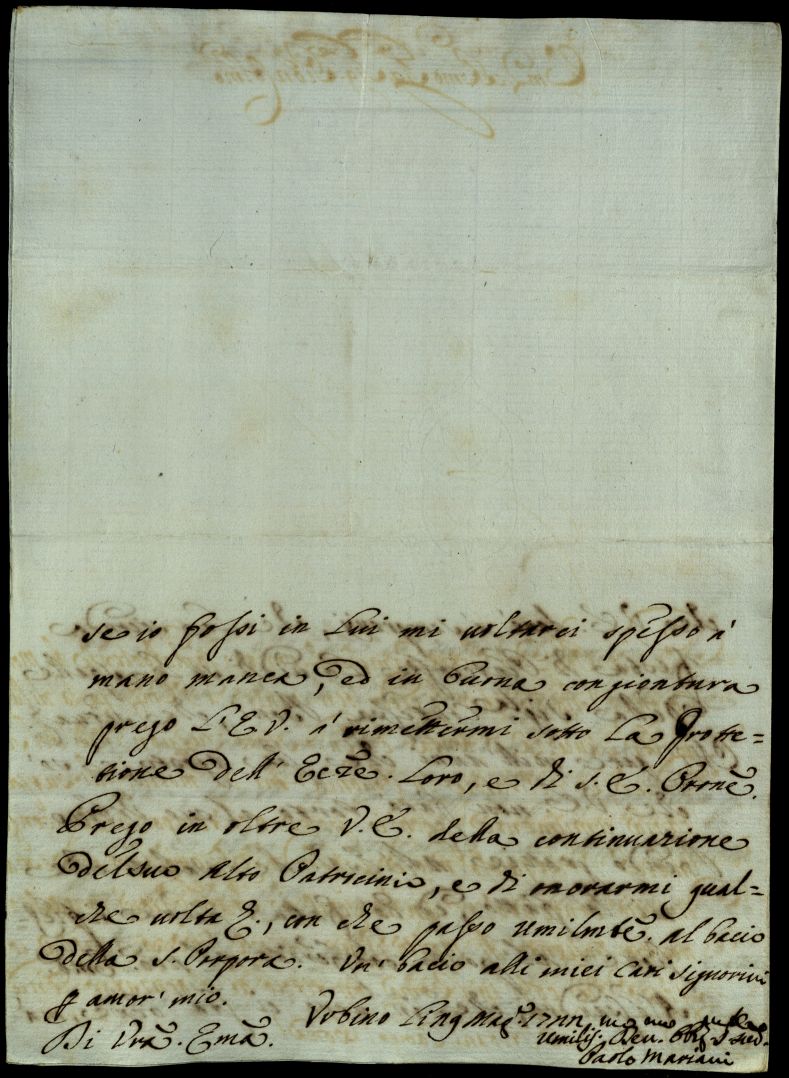 se io fossi in Lui mi voltarei spesso à
mano manca, ed in buona congiontura
prego L'E. V. à rimettermi sotto La Prote=
tione dell' Ecze. Loro, e di S. E. Prone.
Prego in oltre V. E. della continuazione
del suo Alto Patricinio, e di onorarmi qual=
che volta, con che passo umilmte. al bacio
della S. Porpora. Un' bacio alli miei Cari Signorini
p amor' mio.
Urbino Li
Di Vra. Ema.
Umilis. Dev.
Paolo Mariani